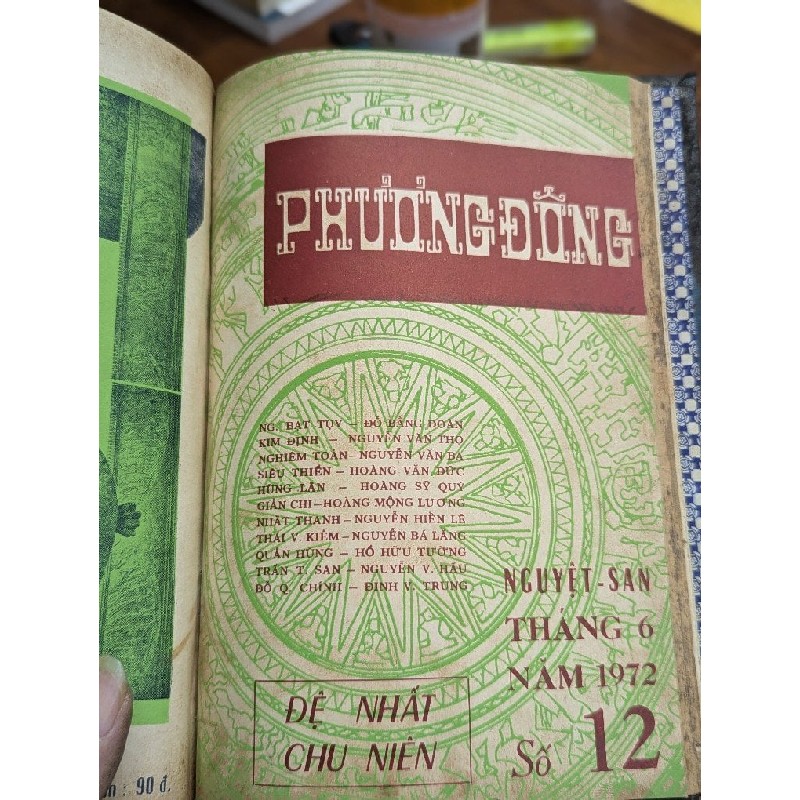 PHƯƠNG ĐÔNG
NG. BẠT TỤY – ĐỖ BẰNG ĐOÀN
KIM ĐỊNH – NGUYỄN VĂN THỌ
NGHIÊM TOẢN – NGUYỄN VĂN BA
SIÊU THIÊN – HOÀNG VĂN ĐỨC
HÙNG LÂN – HOÀNG SỸ QUÝ
GIẢN CHI – HOÀNG MỘNG LƯƠNG
NHẤT THANH – NGUYỄN HIẾN LÊ
THÁI V. KIỂM – NGUYỄN BÁ LĂNG
QUÂN HÙNG – HỒ HỮU TƯỜNG
TRẦN T. SAN – NGUYỄN V. HẦU
ĐỖ Q. CHÍNH – ĐINH V. TRUNG
NGUYỆT-SAN
THÁNG 6
NĂM 1972
Số 12
ĐỆ NHẤT
CHU NIÊN
: 90 đ.